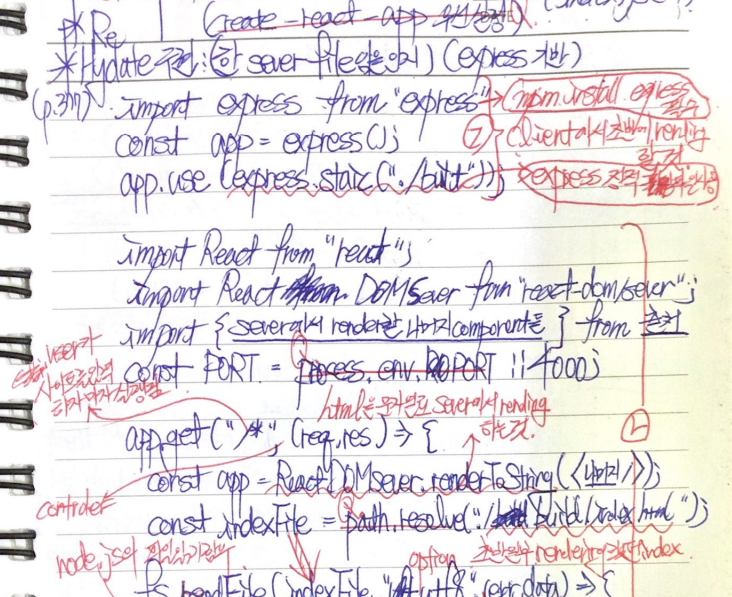 * Re (create-react-app
* Hydate 구현: (한 sever file임을인지) (express 기반)
(p.377) import express from "express" → npm.install express 필수
const app = express(); ㄱ) client에서 초반에 rending 할 것
app.use (express.static("./built")); express 정적
import React from "react";
import React DOMSever from "react-dom/sever";
import { sever에서 render할 나머지 component들 } from 출처
user가
const PORT = process.env.PORT || 4000;
사이트를 입력
하자마자 실행됨
html을 문자열로 sever에서 rending
하는 것.
ㄴ
app.get("/*", (req,res) => {
const app = ReactDOMsever.renderToString(<나머지/>);
controler
const indexFile = path.resolve("./build/index.html");
node.js의 파일읽기
option index.
fs.readFile(indexFile, "utf8", (err,data) => {